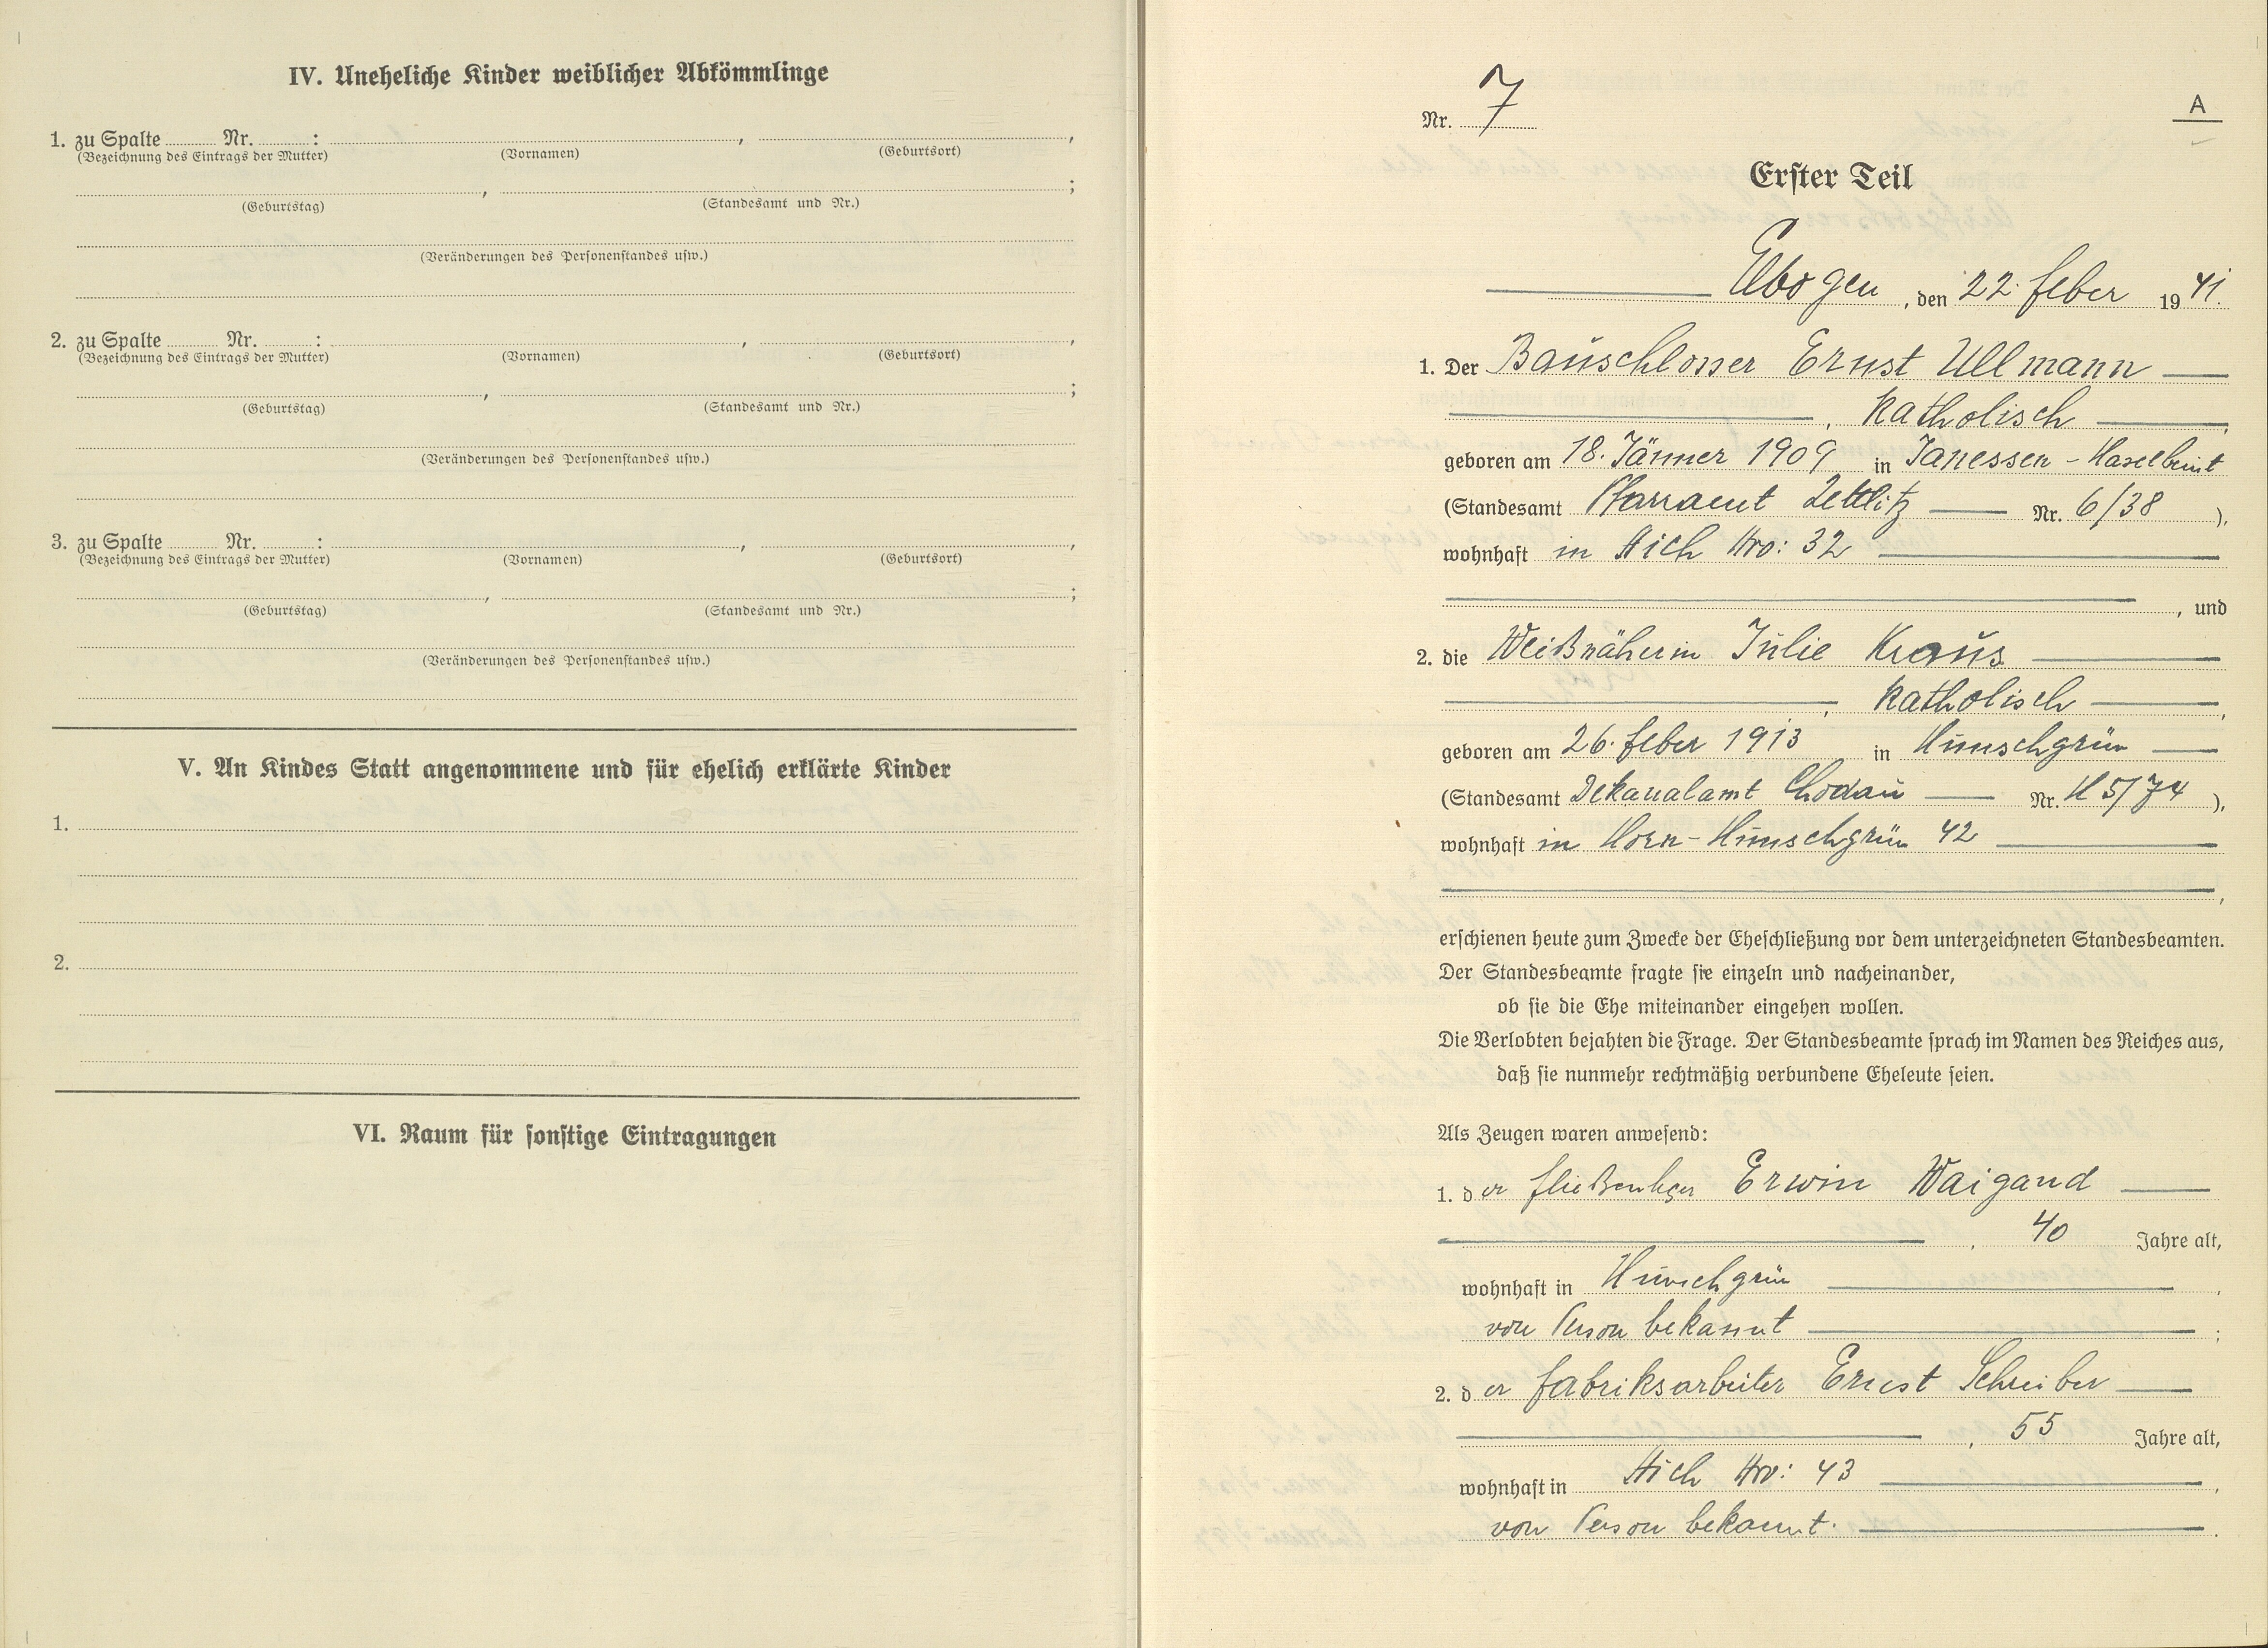 IV. Uneheliche Kinder weiblicher Abkömmlinge
1. zu Spalte ........ Nr. ........ : ........ , ........ ,
(Bezeichnung des Eintrags der Mutter) (Vornamen) (Geburtsort)
, ;
(Geburtstag) (Standesamt und Nr.)
(Veränderungen des Personenstandes usw.)
2. zu Spalte ........ Nr. ........ : ........ , ........ ,
(Bezeichnung des Eintrags der Mutter) (Vornamen) (Geburtsort)
, ;
(Geburtstag) (Standesamt und Nr.)
(Veränderungen des Personenstandes usw.)
3. zu Spalte ........ Nr. ........ : ........ , ........ ,
(Bezeichnung des Eintrags der Mutter) (Vornamen) (Geburtsort)
, ;
(Geburtstag) (Standesamt und Nr.)
(Veränderungen des Personenstandes usw.)
V. An Kindes Statt angenommene und für ehelich erklärte Kinder
1.
2.
VI. Raum für sonstige Eintragungen
Nr. 7
A
Erster Teil
Elbogen, den 22. Feber 1941.
1. Der Bauschlosser Ernst Ullmann
, katholisch ,
geboren am 18. Jänner 1909 in Janessen - Haselbrunt
(Standesamt Pfarramt Zettlitz Nr. 6/38 ),
wohnhaft in Aich Nro: 32
, und
2. die Weißnäherin Julie Kraus
, katholisch ,
geboren am 26. Feber 1913 in Hunschgrün
(Standesamt Dekanalamt Chodau Nr. H 5/74 ),
wohnhaft in Horn-Hunschgrün 42
,
erschienen heute zum Zwecke der Eheschließung vor dem unterzeichneten Standesbeamten.
Der Standesbeamte fragte sie einzeln und nacheinander,
ob sie die Ehe miteinander eingehen wollen.
Die Verlobten bejahten die Frage. Der Standesbeamte sprach im Namen des Reiches aus,
daß sie nunmehr rechtmäßig verbundene Eheleute seien.
Als Zeugen waren anwesend:
1. der Fließenleger Erwin Waigand
, 40 Jahre alt,
wohnhaft in Hunschgrün ,
von Person bekannt ;
2. der Fabriksarbeiter Ernst Schreiber
, 55 Jahre alt,
wohnhaft in Aich Nro: 43 ,
von Person bekannt.